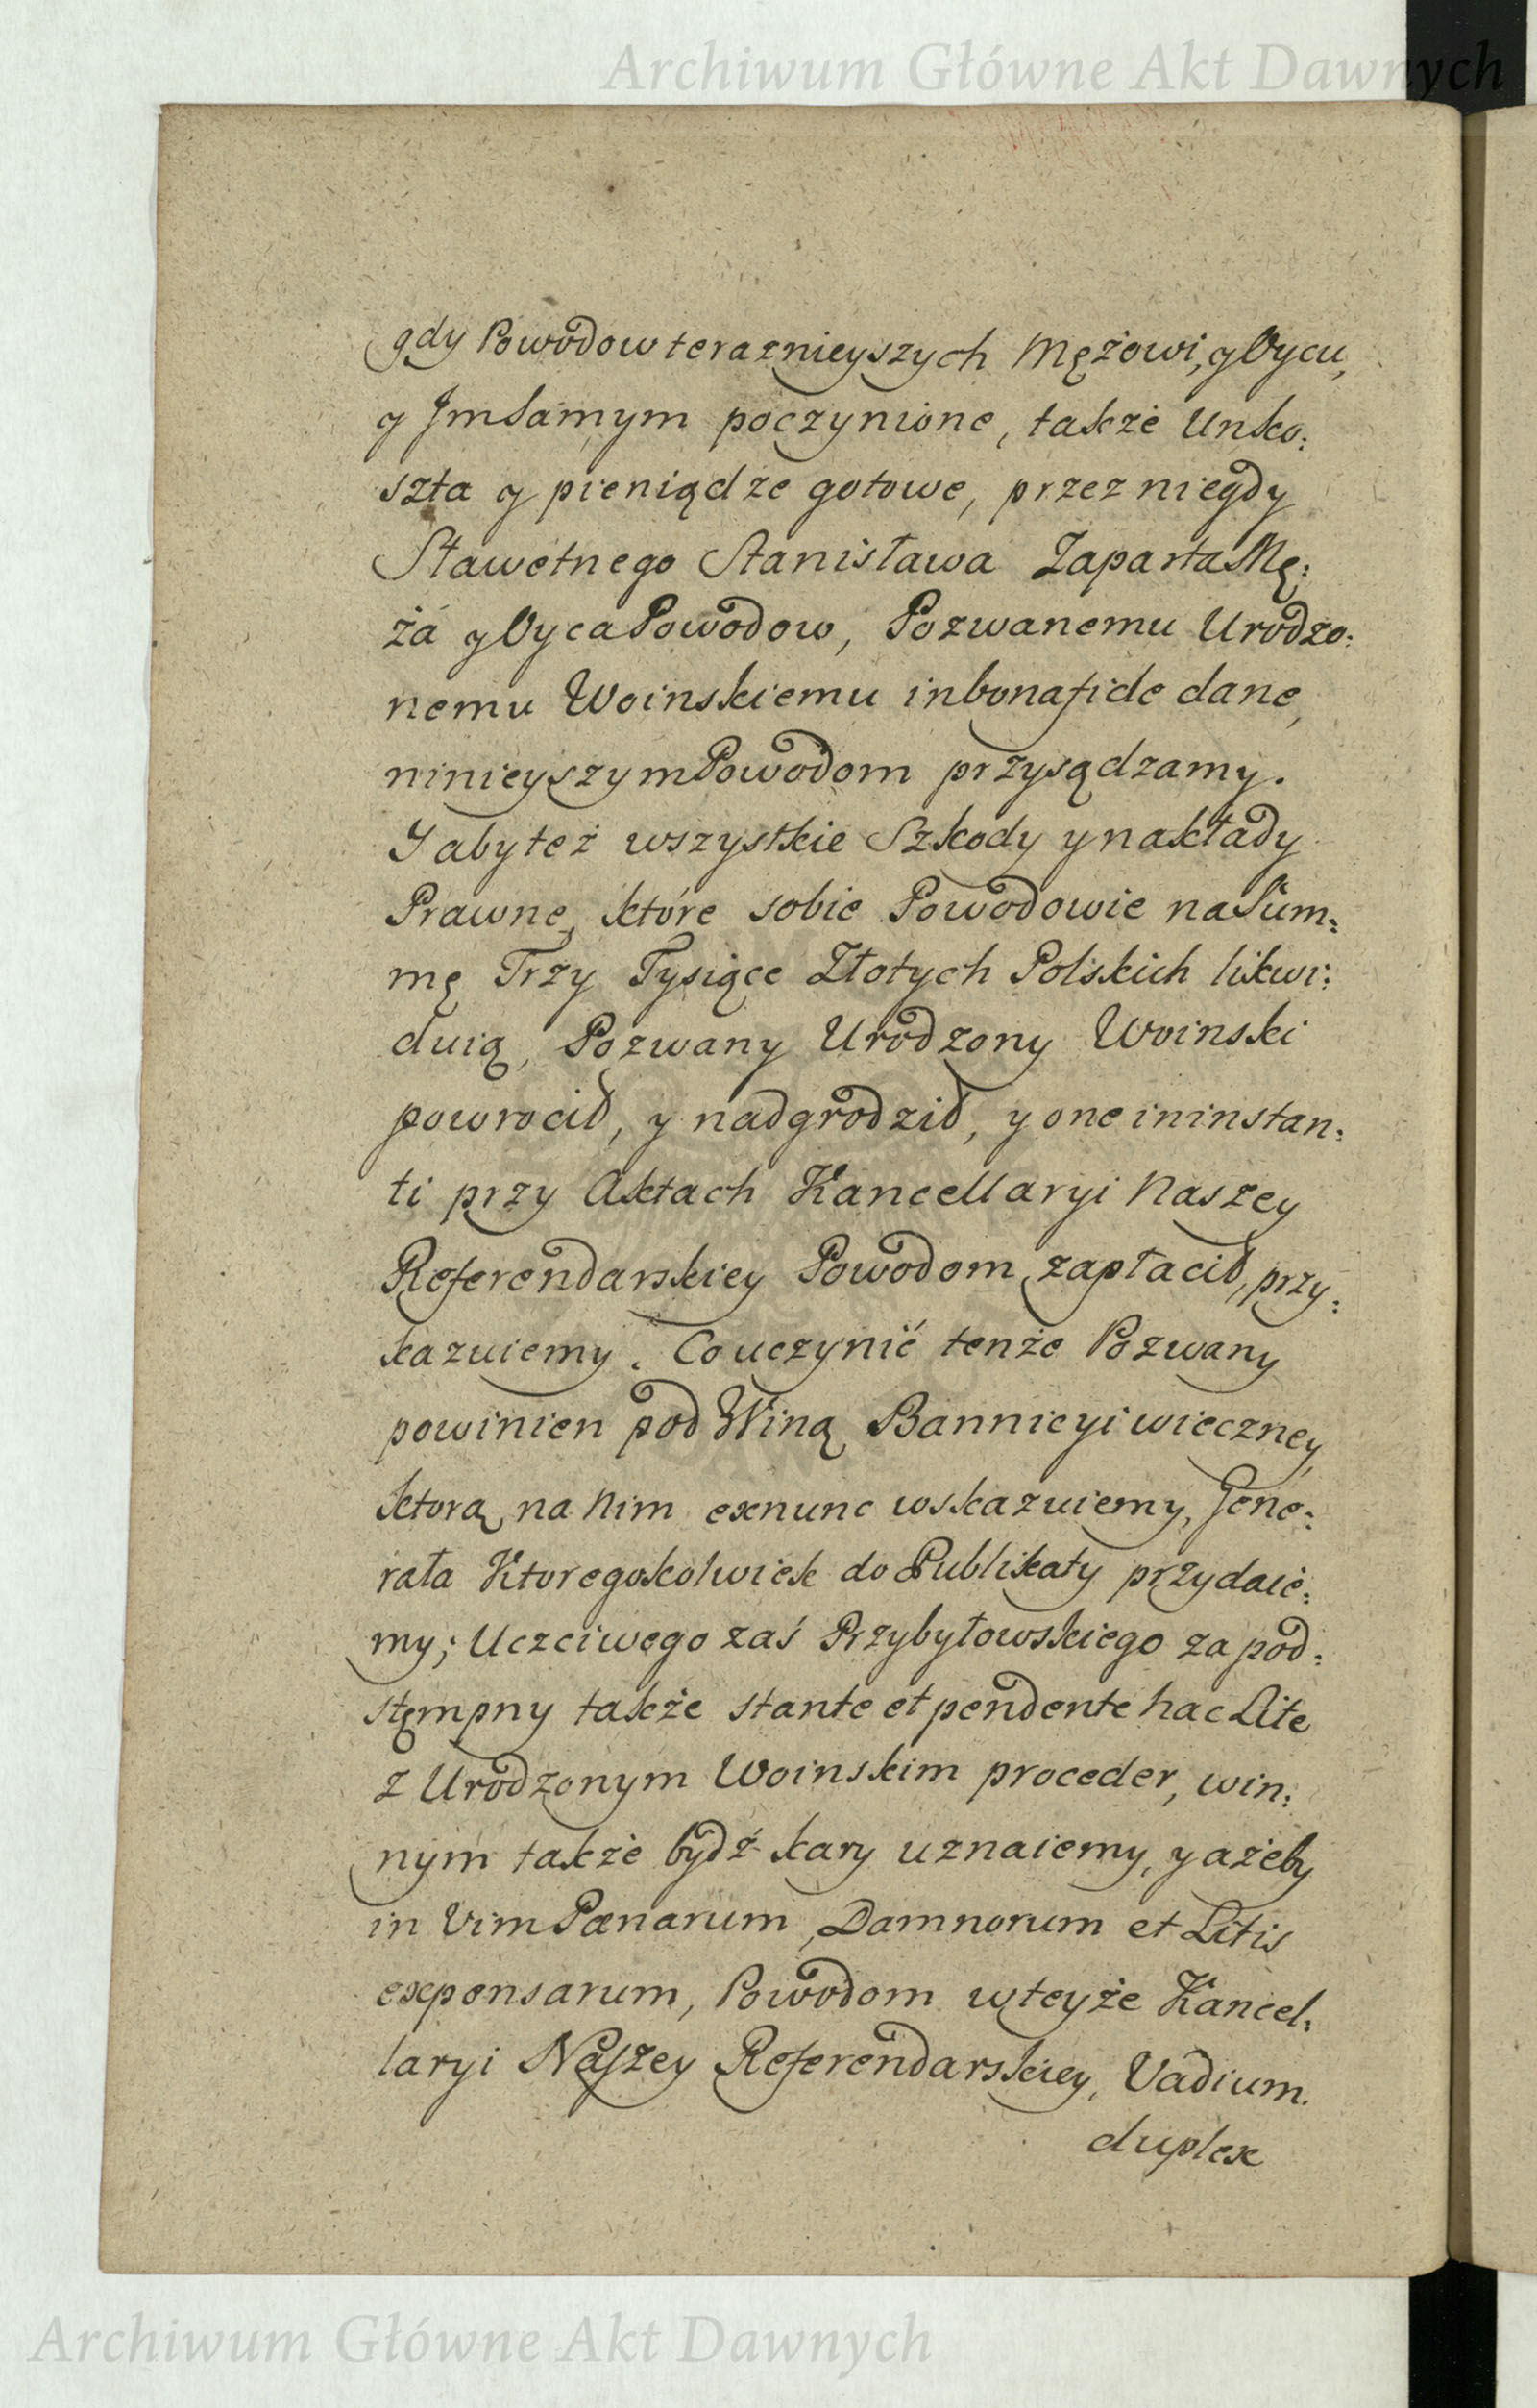 Archiwum Główne Akt Dawnych
gdy Powodow teraznieyszych Mężowi, y Oycu,
y Im Samym poczynione, także Unko:
szta y pieniądze gotowe, przez niegdy
Sławetnego Stanisława Zaparta Mę:
żá y Oyca Powodow, Pozwanemu Urodzo:
nemu Woinskiemu in bona fide dane,
ninieyszym Powodom przysądzamy.
Y aby też wszystkie Szkody y nakłady
Prawne, które sobie Powodowie na Sum:
mę Trzy Tysiące Złotych Polskich likwi:
duią, Pozwany Urodzony Woinski
powrocił, y nadgrodził, y one in instan:
ti przy Aktach Kancellaryi Naszey
Referendarskiey Powodom zapłacił, przy:
kazuiemy. Co uczynić tenże Pozwany
powinien pod Winą Bannicyi wieczney,
ktorą na Nim exnunc wskazuiemy, Gene:
rała Ktoregokolwiek do Publikaty przydaie:
my; Uczciwego zaś Przybyłowskiego za pod:
stęmpny także stante et pendente hac Lite
z Urodzonym Woinskim proceder, win:
nym także bydź kary uznaiemy, y ażeby
in Vim Pænarum, Damnorum et Litis
expensarum, Powodom w teyże Kancel:
laryi Naszey Referendarskiey, Vadium.
duplex
Archiwum Główne Akt Dawnych